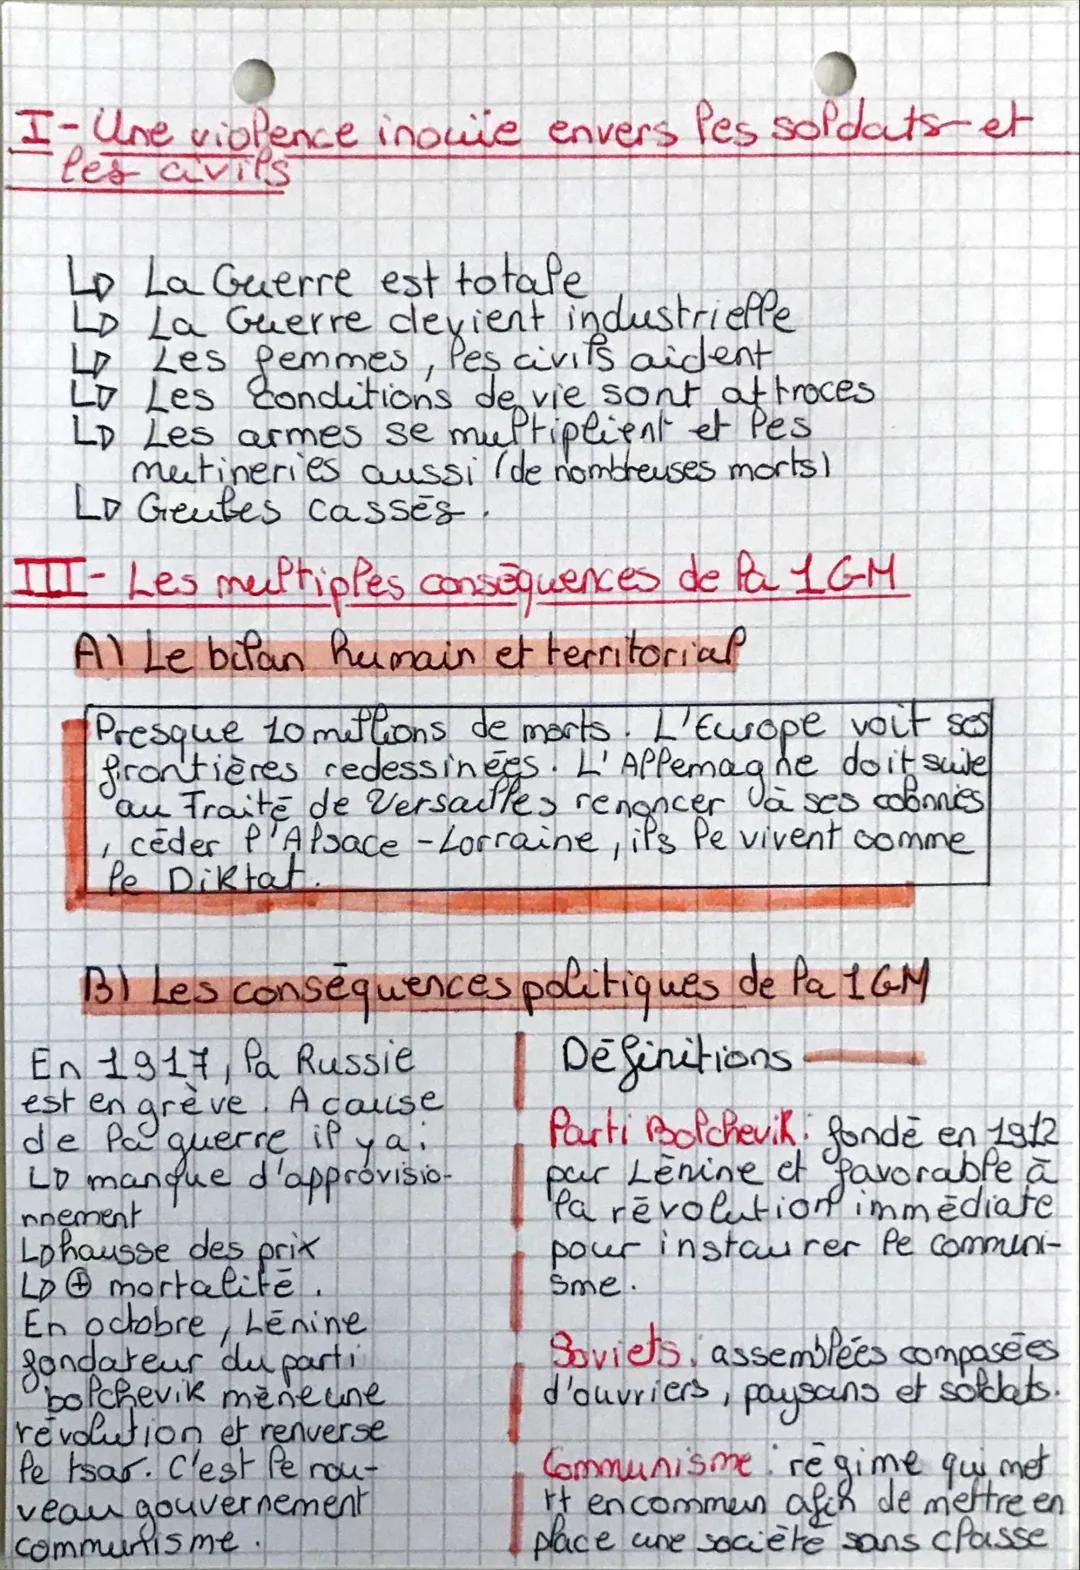 I - Une violence inouïe envers les soldats et
les civils
La Guerre est totale
La Guerre devient industrielle
Les femmes, les civils aident
Les conditions de vie sont attroces
Les armes se multiplient et les
mutineries aussi (de nombreuses morts)
Geules cassés.
III - Les multiples conséquences de la 1GM
A) Le bilan humain et territorial
Presque 10 millions de morts. L'Europe voit ses
frontières redessinées. L'Allemagne doit suite
au Traité de Versailles renoncer à ses colonies
, céder l'Alsace-Lorraine, ils le vivent comme
le Diktat.
B) Les conséquences politiques de la 1GM
En 1917, la Russie
est en grève. A cause
de la guerre il y a :
manque d'approvisio-
nnement
hausse des prix
⊕ mortalité.
En octobre, Lénine
fondateur du parti
bolchevik mène une
révolution et renverse
le tsar. C'est le nou-
veau gouvernement
communisme.
Définitions
Parti Bolchevik : fondé en 1912
par Lénine et favorable à
la révolution immédiate
pour instaurer le communi-
sme.
Soviets : assemblées composées
d'ouvriers, paysans et soldats.
Communisme : régime qui met
tt en commun afin de mettre en
place une société sans classe